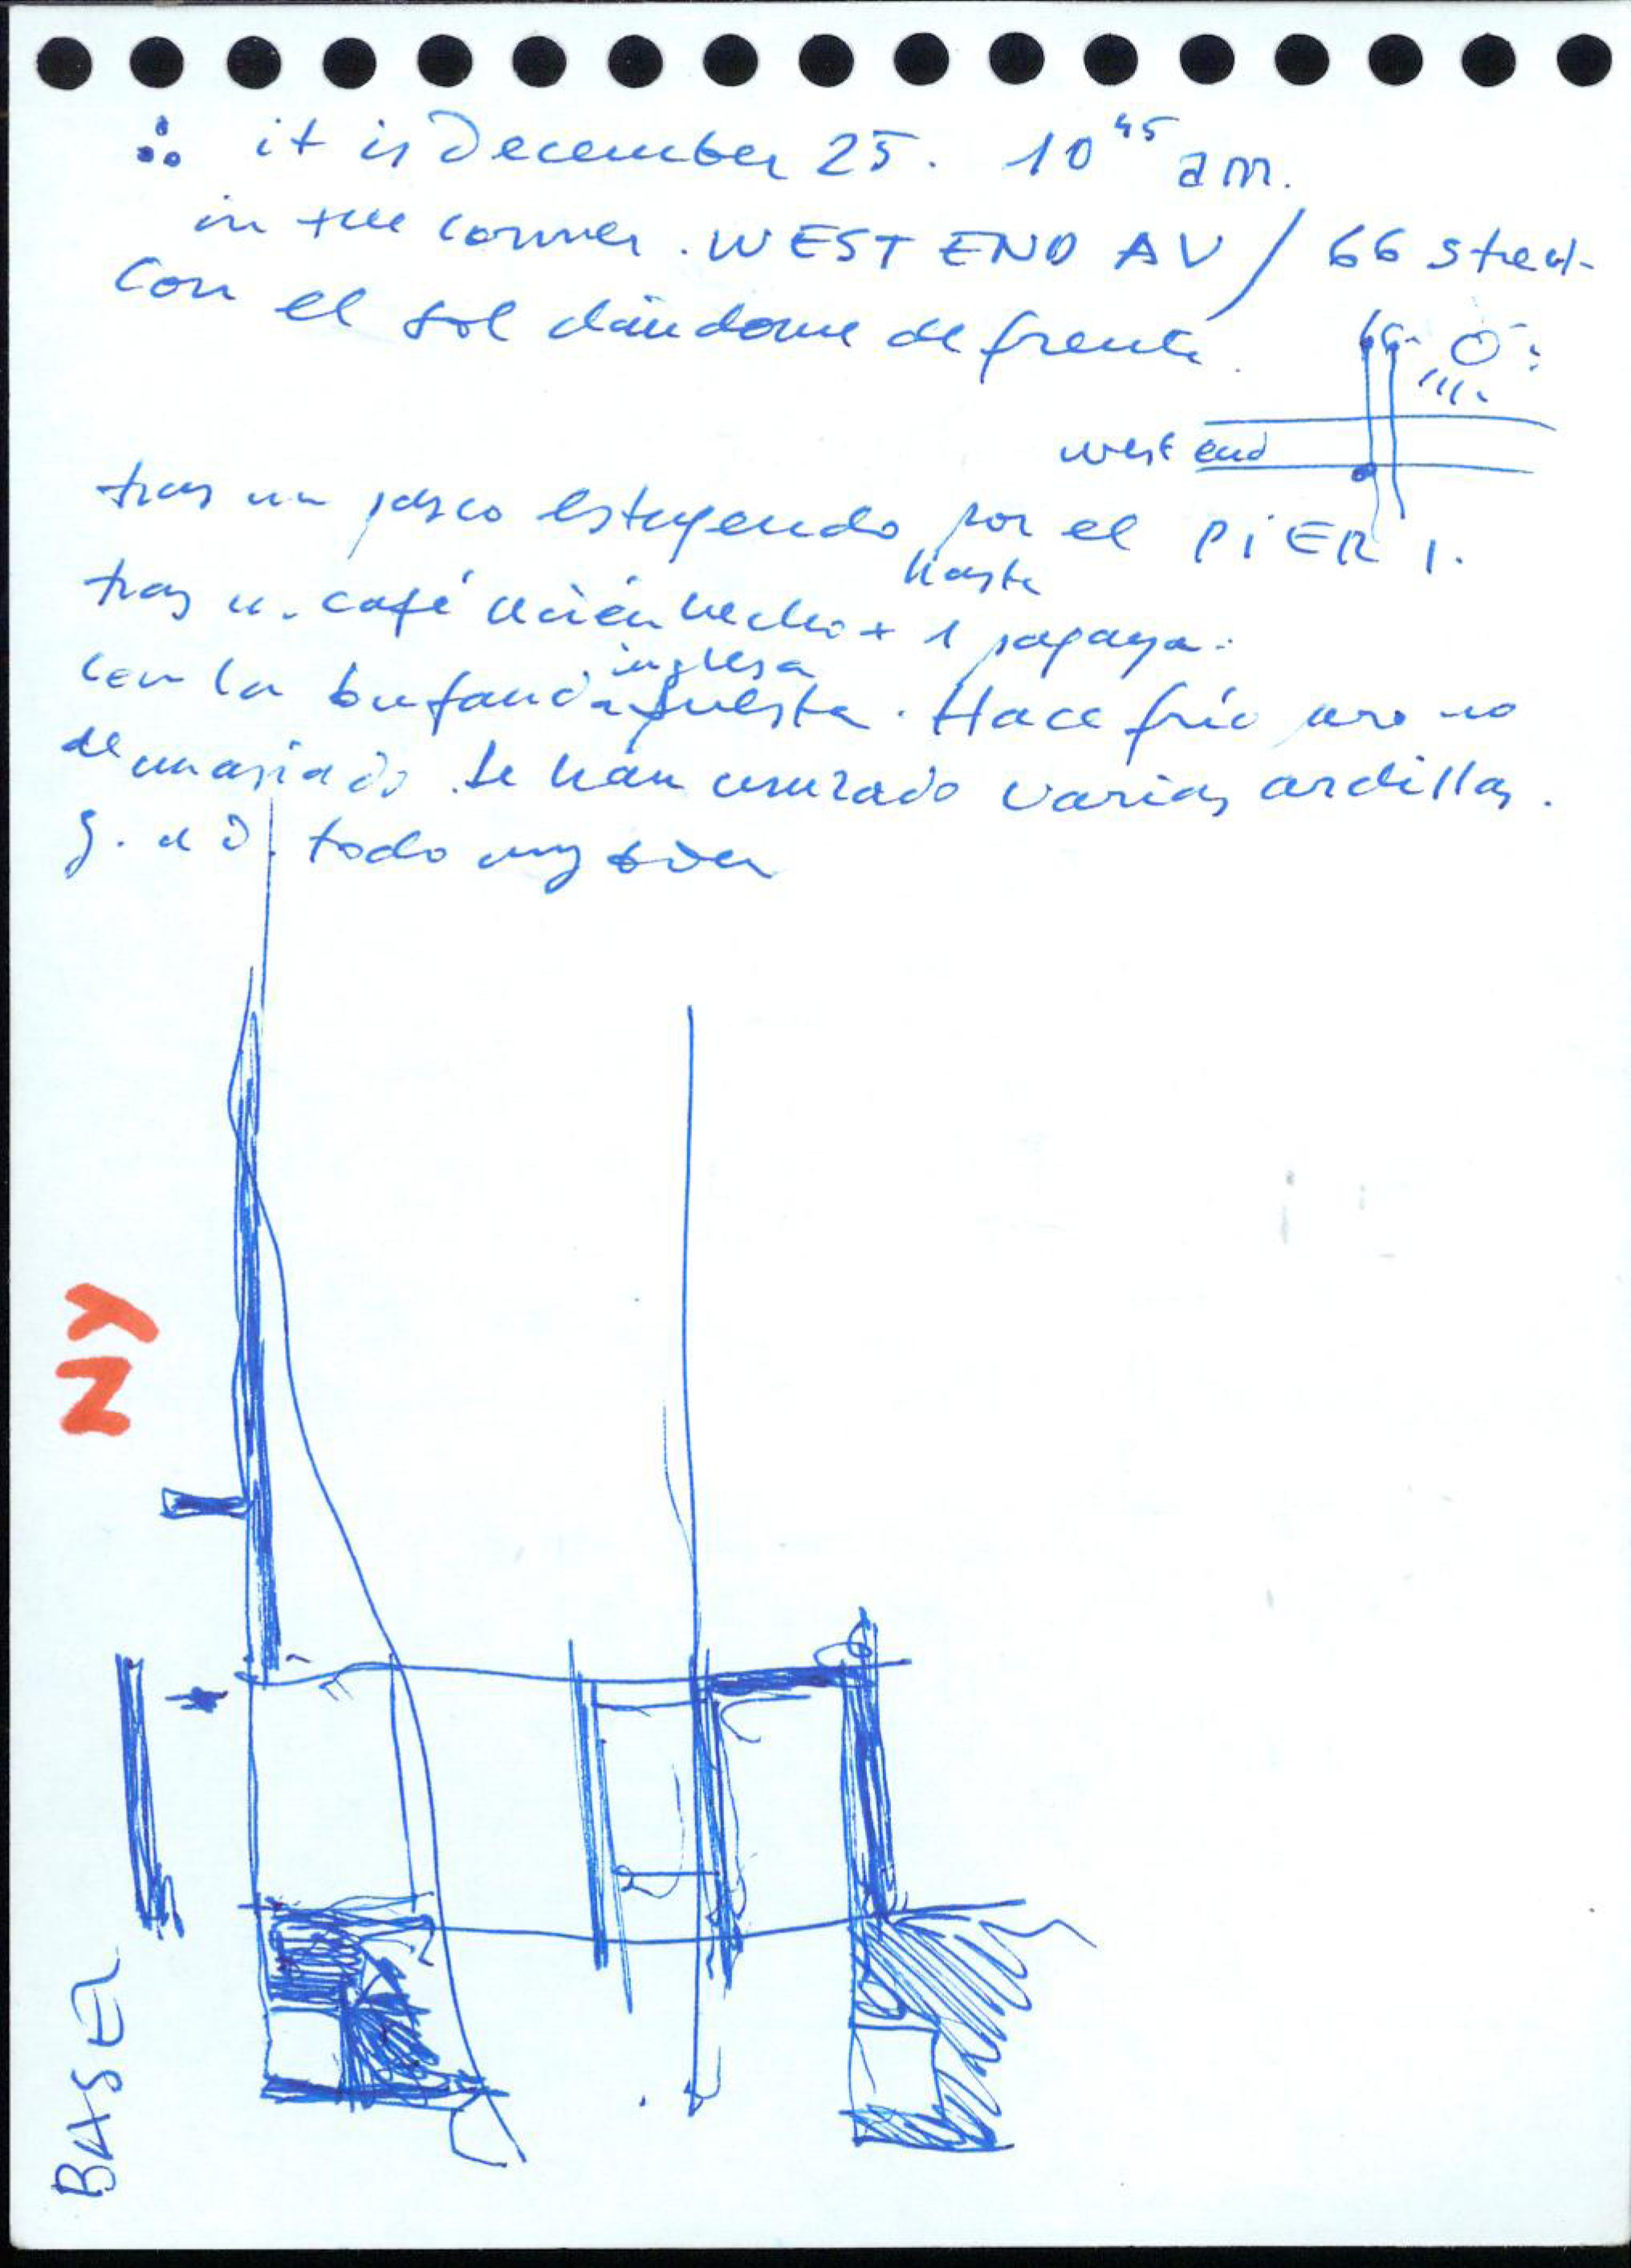 ∴ it is December 25. 10⁴⁵ am.
in the corner. WEST END AV / 66 street
con el sol dándome de frente.
66
west end
tras un paseo estupendo por el PIER 1.
hasta
tras un café recién hecho + 1 papaya.
inglesa
con la bufanda puesta. Hace frío pero no
demasiado. Se han cruzado varias ardillas.
g. a D. todo muy bien
NY
BASEL